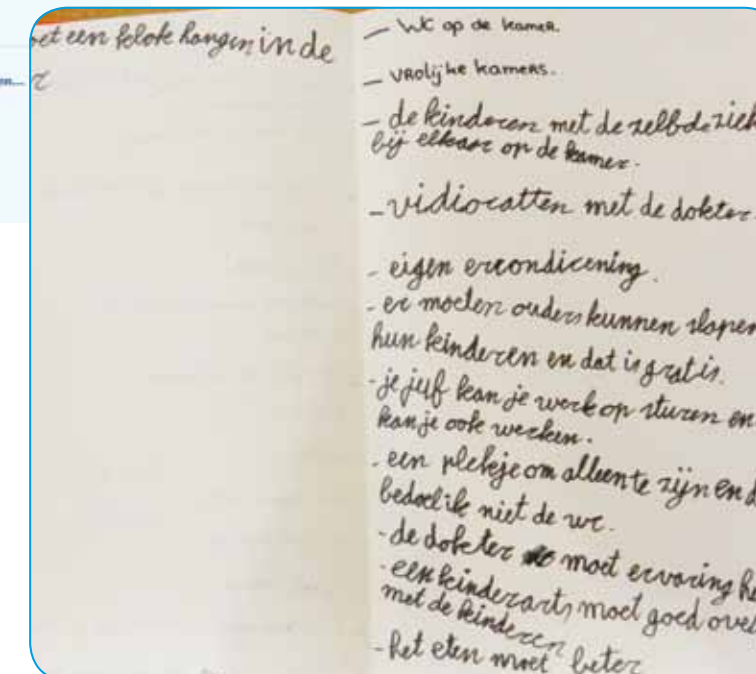 en...
oet een klok hangen in de
r
- WC op de kamer.
- vrolijke kamers.
- de kinderen met de zelbde ziek
bij elkaar op de kamer.
- vidiocatten met de dokter.
- eigen erecondicening.
- er moeten ouders kunnen slapen
hun kinderen en dat is gratis.
- je juf kan je werk op sturen en
kan je ook werken.
- een plekje om alleen te zijn en d
bedoel ik niet de wc.
- de dokter moet ervaring he
- een kinderarts moet goed over
met de kinderen
- het eten moet beter